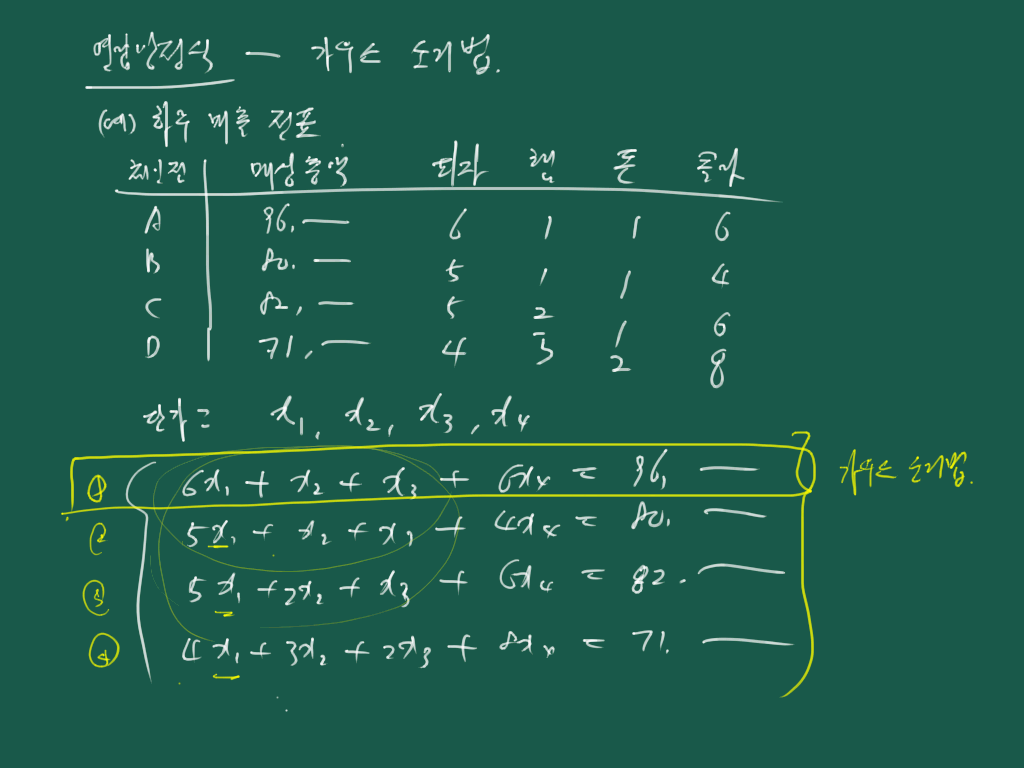 연립방정식 — 가우스 소거법.
(예) 하루 매출 전표
체인점 매상총액 피자 햄 돈 콜라
A 96, — 6 1 1 6
B 80. — 5 1 1 4
C 82, — 5 2 1 6
D 71, — 4 3 2 8
단가 = x₁, x₂, x₃, x₄
① 6x₁ + x₂ + x₃ + 6x₄ = 96, — 가우스 소거법.
② 5x₁ + x₂ + x₃ + 4x₄ = 80. —
③ 5x₁ + 2x₂ + x₃ + 6x₄ = 82. —
④ 4x₁ + 3x₂ + 2x₃ + 8x₄ = 71. —